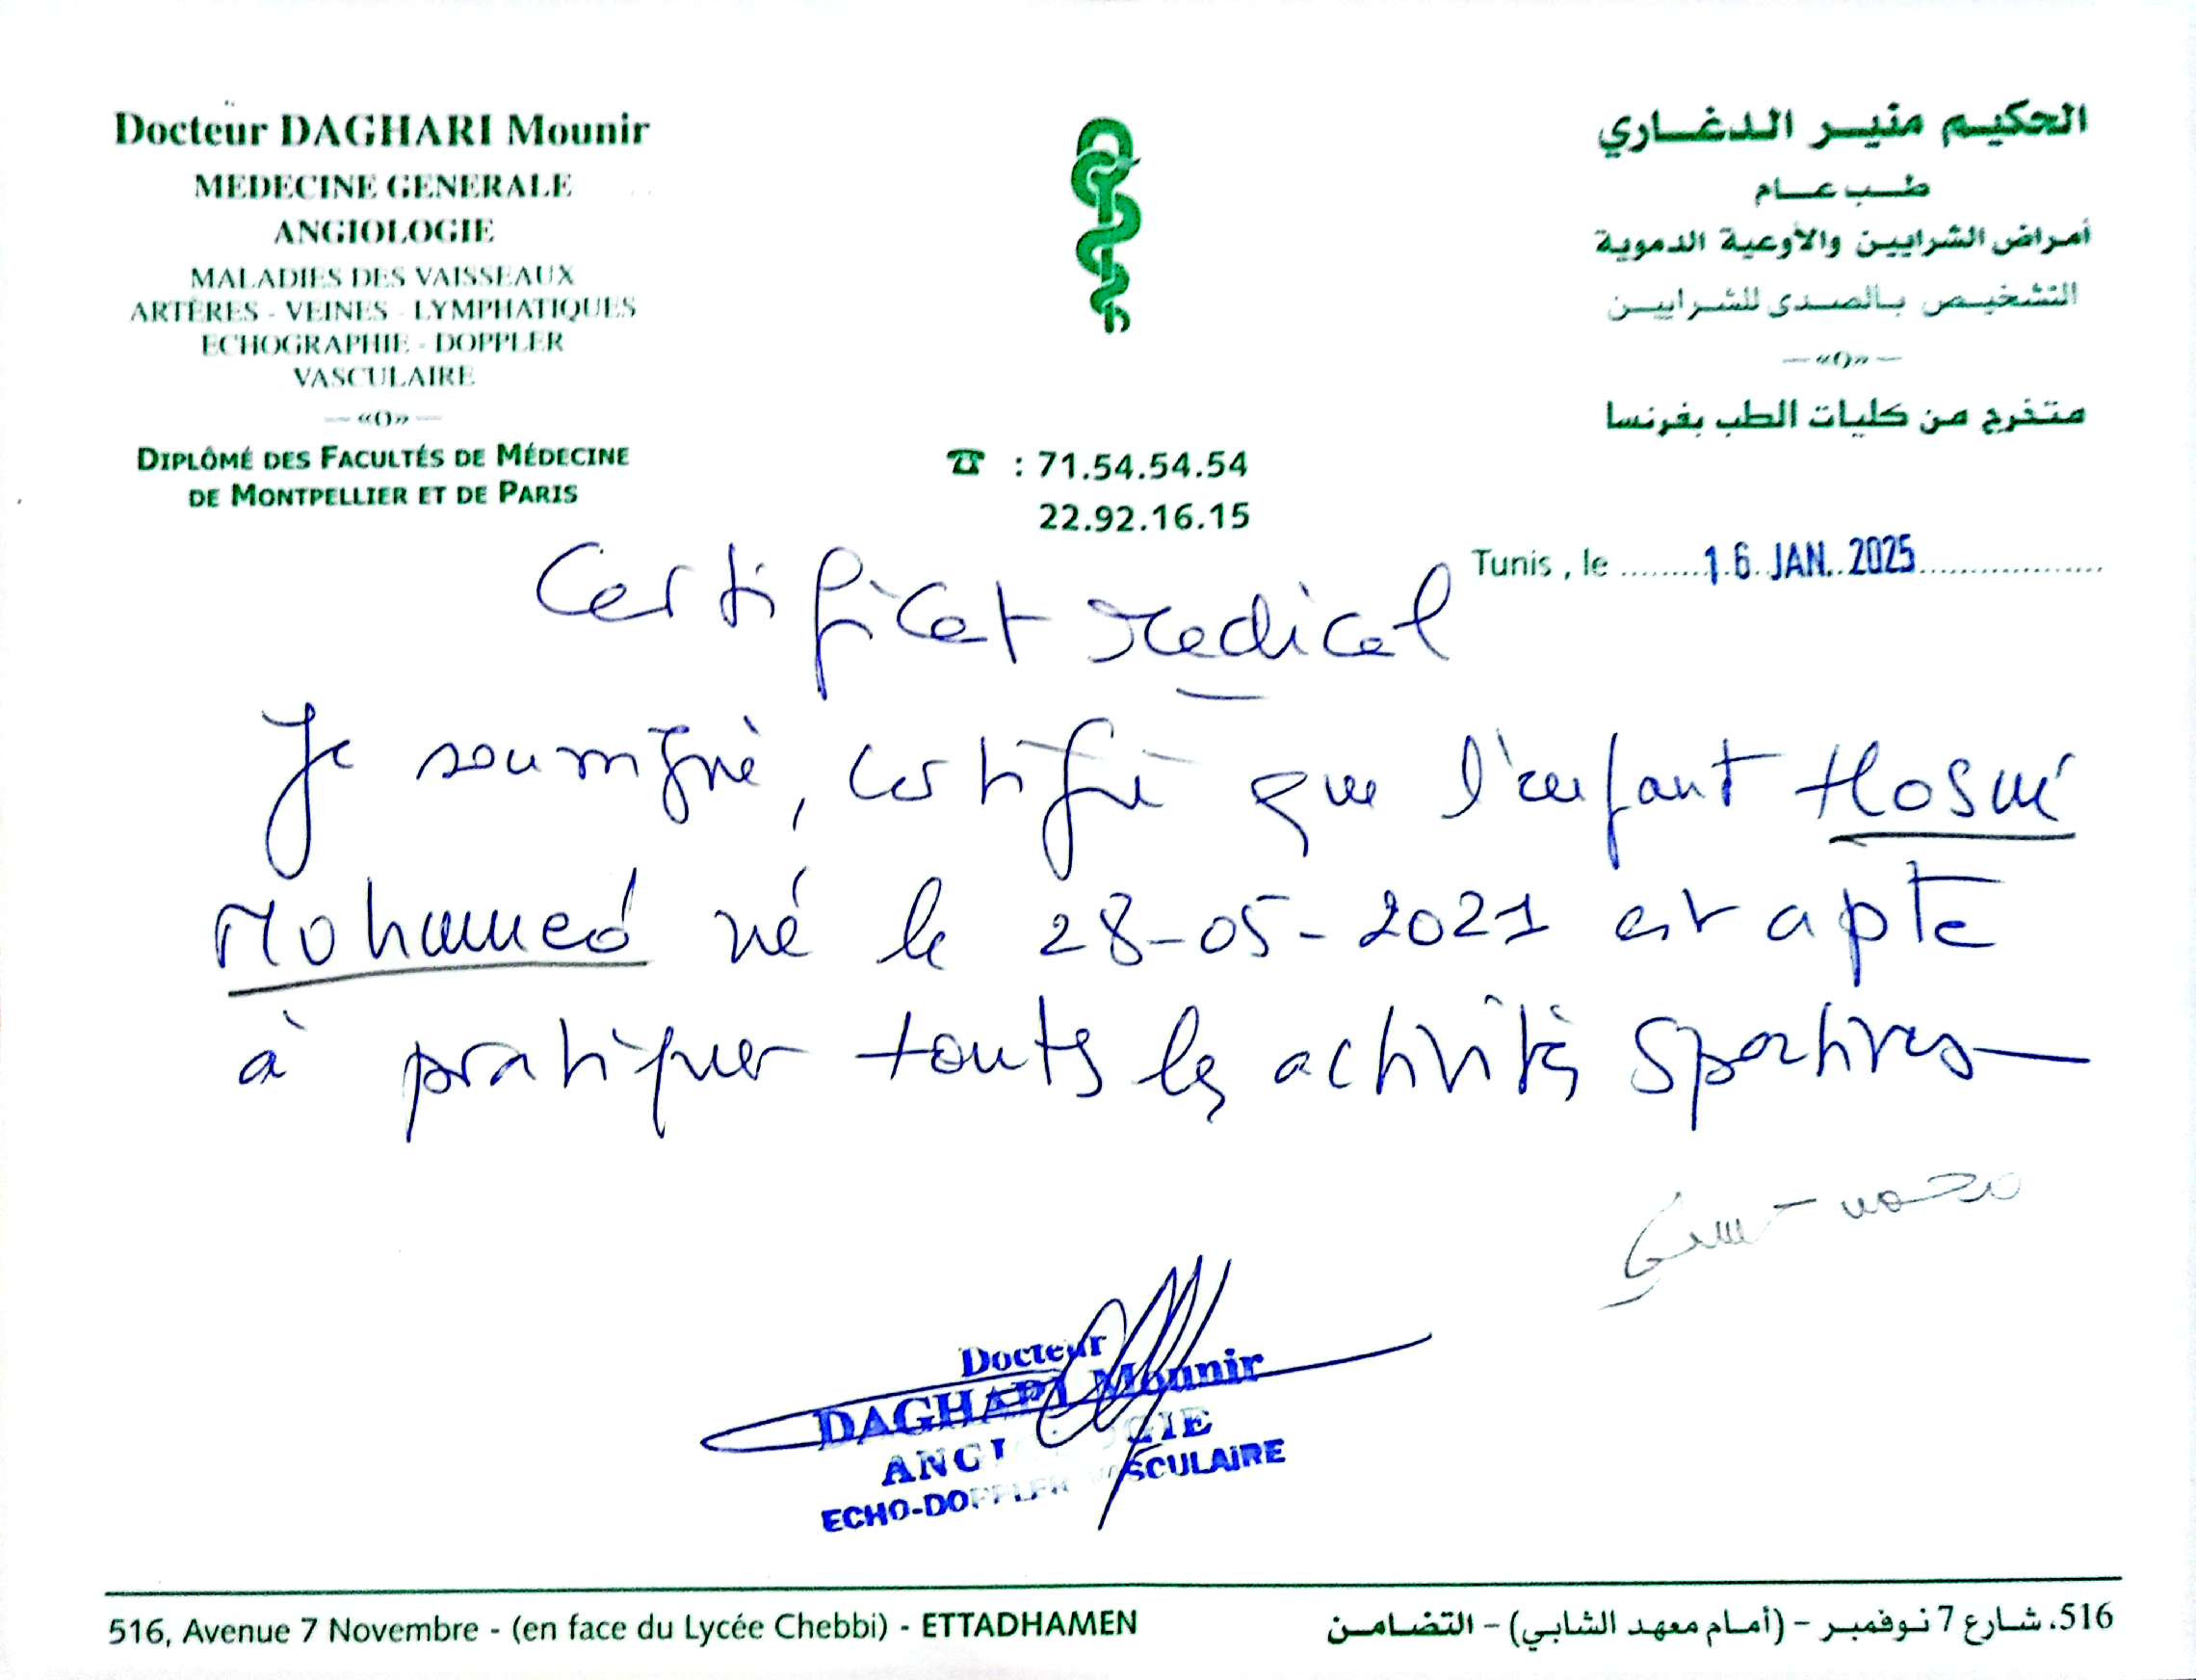 Docteur DAGHARI Mounir
MEDECINE GENERALE
ANGIOLOGIE
MALADIES DES VAISSEAUX
ARTÈRES - VEINES - LYMPHATIQUES
ECHOGRAPHIE - DOPPLER
VASCULAIRE
— «O» —
DIPLÔMÉ DES FACULTÉS DE MÉDECINE
DE MONTPELLIER ET DE PARIS
☎ : 71.54.54.54
22.92.16.15
الحكيم منير الدغاري
طب عام
أمراض الشرايين والأوعية الدموية
التشخيص بالصدى للشرايين
— «O» —
متخرج من كليات الطب بفرنسا
Tunis , le ........16 JAN. 2025..................
Certificat Medical
Je soussigné, certifie que l'enfant Hosni
Mohamed né le 28-05-2021 est apte
à pratiquer toutes les activités sportives
محمد حسني
Docteur
DAGHARI Mounir
ANGIOLOGIE
ECHO-DOPPLER VASCULAIRE
516, Avenue 7 Novembre - (en face du Lycée Chebbi) - ETTADHAMEN
516، شارع 7 نوفمبر – (أمام معهد الشابي) – التضامن